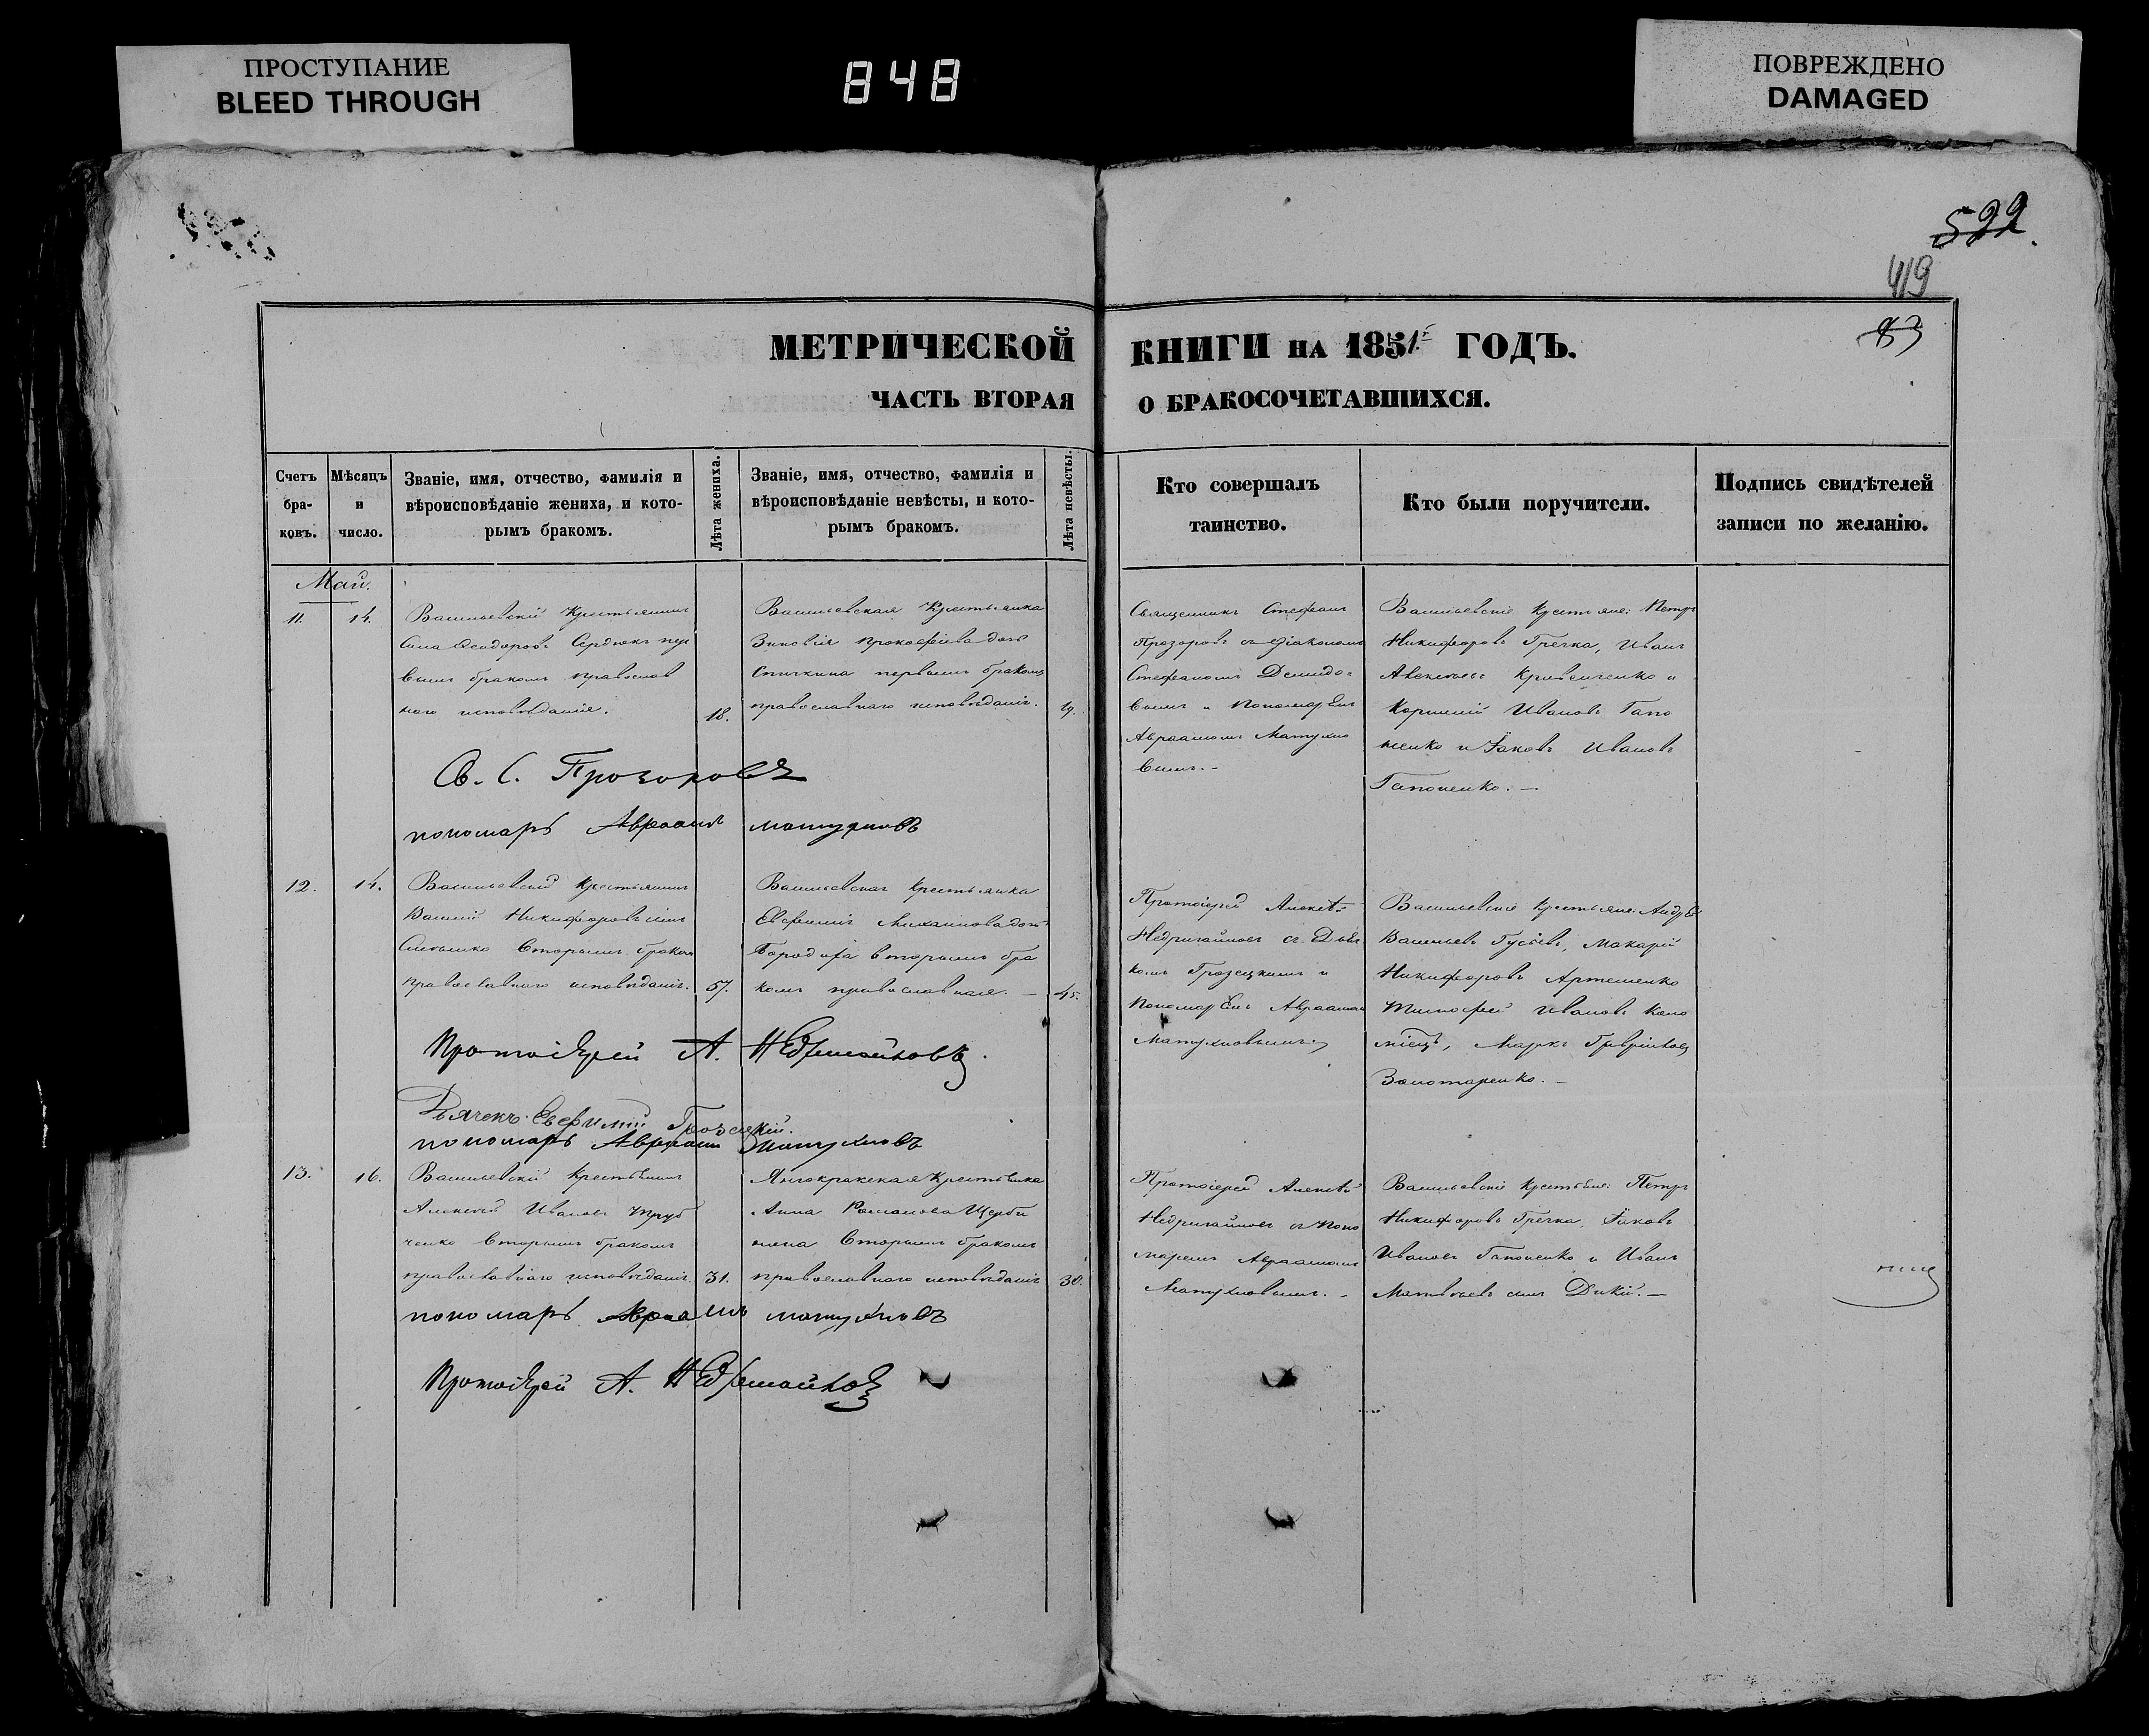 ПРОСТУПАНИЕ
BLEED THROUGH
848
ПОВРЕЖДЕНО
DAMAGED
522.
419
83
МЕТРИЧЕСКОЙ КНИГИ НА 1851 ГОДЪ.
ЧАСТЬ ВТОРАЯ О БРАКОСОЧЕТАВШИХСЯ.
Счетъ бра-ковъ.
Мѣсяцъ и число.
Званіе, имя, отчество, фамилія и
вѣроисповѣданіе жениха, и кото-
рымъ бракомъ.
Лѣта жениха.
Званіе, имя, отчество, фамилія и
вѣроисповѣданіе невѣсты, и кото-
рымъ бракомъ.
Лѣта невѣсты.
Кто совершалъ
таинство.
Кто были поручители.
Подпись свидѣтелей
записи по желанію.
Май.
11.
14.
Васильевскій Крестьянинъ
Сердюкъ пер
вымъ бракомъ православ
наго исповѣданія.
18.
Васильевская Крестьянка
Зиновія Прокофіева дочь
Спичкина первымъ бракомъ
православнаго исповѣданія.
19.
Священникъ Стефанъ
Прозоровъ съ Діакономъ
Стефаномъ Демидо-
вымъ и Пономаремъ
Авраамомъ Матухно
вымъ.-
Васильевскіе Крестьяне: Петръ
Никифоровъ Гречка, Иванъ
Алексѣевъ Кривенченко и
Корнилій Ивановъ Гапо
ненко и Яковъ Ивановъ
Гапоненко.-
Св. С. Прозоровъ
пономарь Авраамъ Матухновъ
12.
14.
Васильевскій Крестьянинъ
Василій Никифоровъ сынъ
вторымъ бракомъ
православнаго исповѣданія.
57.
Васильевская Крестьянка
Евфимія Михаилова дочь
вторымъ бра
комъ православная.-
45.
Протоіерей Алексѣй
Недригайловъ съ Дьяч
комъ Грозецкимъ и
Пономаремъ Авраамомъ
Матухновымъ
Васильевскіе Крестьяне: Андрей
Васильевъ Гусевъ, Макарій
Никифоровъ Артеменко
Тимофей Ивановъ Коло
міецъ, Маркъ Гавриловъ
Золотаренко.-
Протоіерей А. Недригайловъ.
Дьячекъ Евфимій Грозецкій.
пономарь Авраамъ Матухновъ
13.
16.
Васильевскій Крестьянинъ
Алексѣй Ивановъ Труб
ченко вторымъ бракомъ
православнаго исповѣданія.
31.
Янчокракская Крестьянка
Анна Романова Щерби
нина вторымъ бракомъ
православнаго исповѣданія
30.
Протоіерей Алексѣй
Недригайловъ съ Поно
маремъ Авраамомъ
Матухновымъ.-
Васильевскіе Крестьяне: Петръ
Никифоровъ Гречка, Яковъ
Ивановъ Гапоненко и Иванъ
Матвѣевъ сынъ Дикій.-
пономарь Авраамъ Матухновъ
Протоіерей А. Недригайловъ